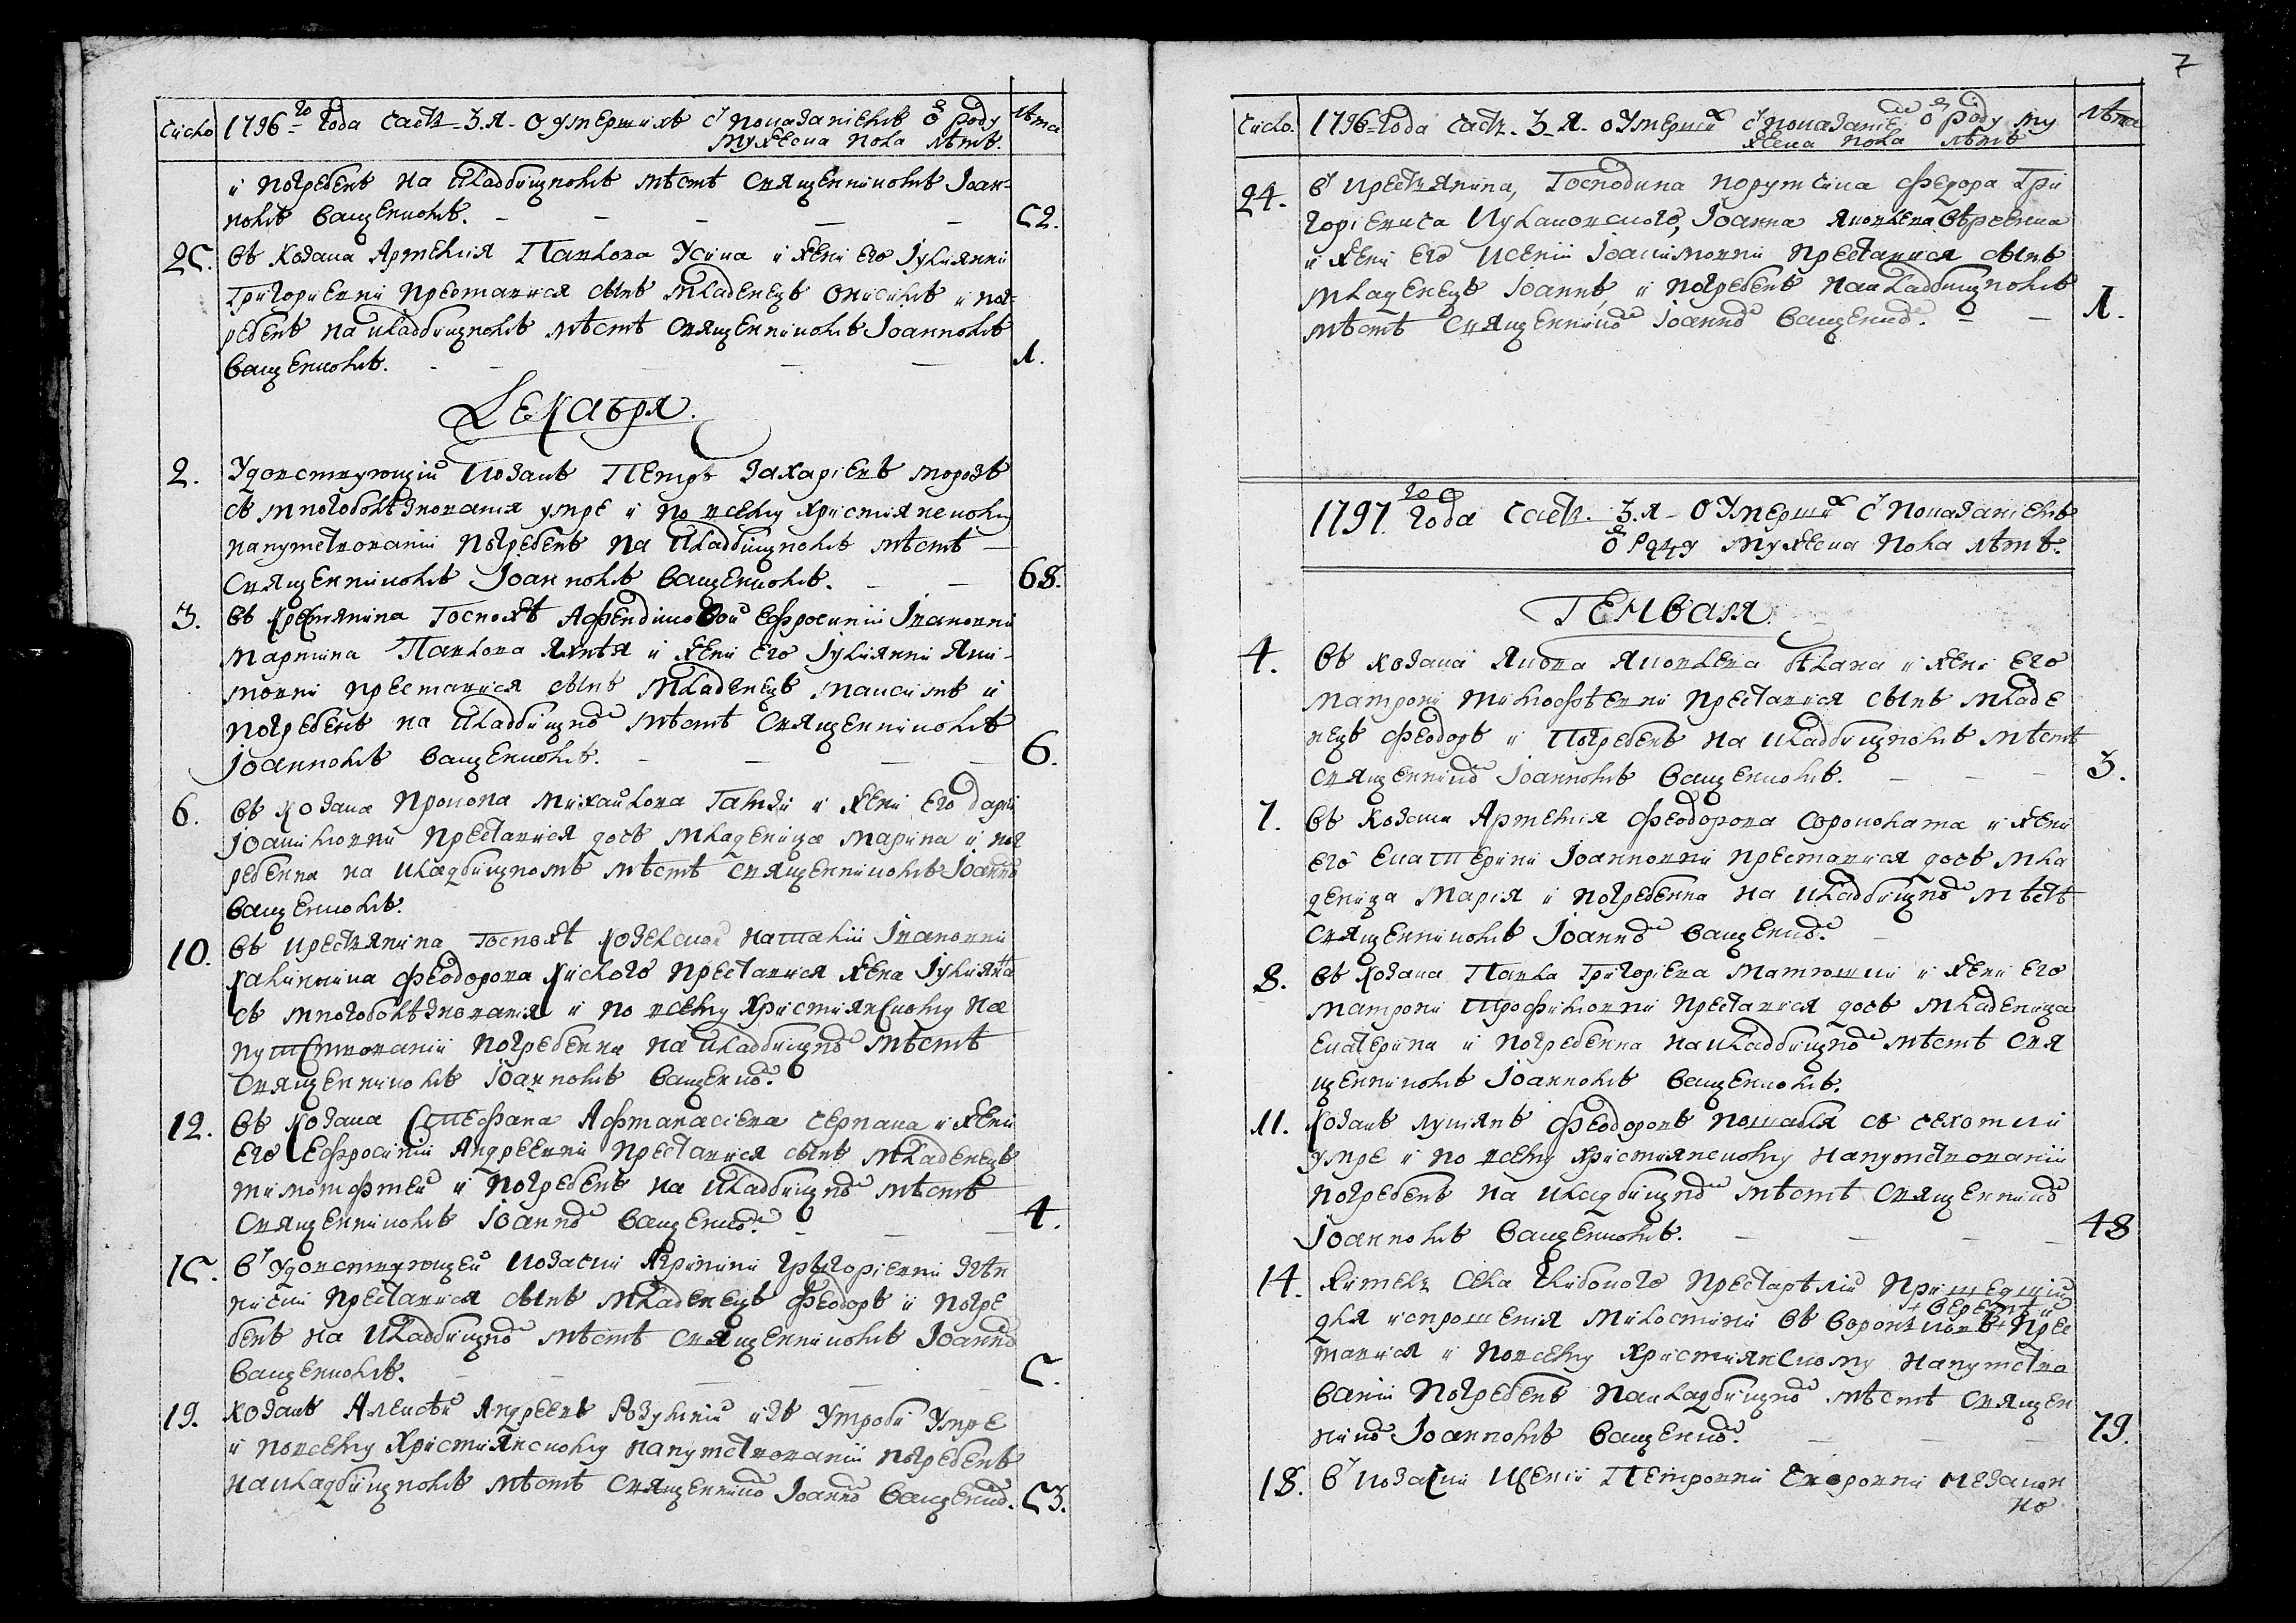 Число 1796 го года часть 3.я о умершихъ с показаніемъ ѿ роду Лѣта
мужеска пола лѣтъ.
и погребенъ на кладбищномъ мѣстѣ священникомъ Іоан-
номъ Ващенкомъ. 52.
25. Въ козака Артемія Павлова и жени его Іулиянни
Григориевни преставися сынъ младенецъ Онисимъ и пог-
ребенъ на кладбищномъ мѣстѣ священникомъ Іоанномъ
Ващенкомъ. 1.
Декабря.
2. Удовствующій козакъ Петръ Захаріевъ Морозъ
съ многоболѣзнованія умре и по всему християнскому
напутствованіи погребенъ на кладбищномъ мѣстѣ
священникомъ Іоанномъ Ващенкомъ. 68.
3. Въ крестянина госпожѣ Афендиковой Ефросинии Ивановни
Мартина Павлова и жени его Іулиянни Яки-
мовни преставися сынъ младенецъ Максимъ и
погребенъ на кладбищно мѣстѣ священникомъ
Іоанномъ Ващенкомъ. 6.
6. Въ козака Прокопа Михайлова и жени его Дарии
Іоакимовни преставися дочь младеница Марина и пог
ребенна на кладбищномъ мѣстѣ священникомъ Іоанно
Ващенкомъ.
10. Въ крестянина госпожѣ Козелской Наталии Ивановни
Калинника Феодорова Кислого преставися жена Іулиянна
съ многоболѣзнования и по всему християнскому на
путствованіи погребенна на кладбищно мѣстѣ
священникомъ Іоанномъ Ващенко.
12. Въ козака Стефана Афтанасіева и жени
его Ефросиніи Андреевни преставися сынъ младенецъ
Тимотфтей и погребенъ на кладбищно мѣстѣ
священникомъ Іоанно Ващенко. 4.
15. В удовствующей козачки Агрипини Григориевни
преставися сынъ младенецъ Феодоръ и погре
бенъ на кладбищно мѣстѣ священникомъ Іоанно
Ващенкомъ. 5.
19. Козакъ Алексѣй Андреевъ изъ утроби умре
и по всему християнскому напутствованіи погребенъ
на кладбищномъ мѣстѣ священнико Іоанно Ващенко. 53.
7
Число. 1796 года часть 3.я о умерши с показаніе ѿ роду му Лѣта
жеска пола лѣтъ
24. В крестянина, господина порутчика Федора Гри
горіевича Іоанна Яковлева
и жени его Ксении Іоакимовни преставися сынъ
младенецъ Іоаннъ, и погребенъ на кладбищномъ
мѣстѣ священнико Іоанно Ващенко. 1.
1797 го года часть 3.я о умерши с показаніемъ
ѿ роду мужеска пола лѣтъ.
Генваря.
4. Въ козака Якова Яковлева и жени его
Матрони преставися сынъ младе
нецъ Феодоръ и погребенъ на кладбищномъ мѣстѣ
священнико Іоанномъ Ващенкомъ. 3.
7. Въ козака Артемія Феодорова Сороколата и жени
его Екатерини Іоанновни преставися дочь мла
деница Марія и погребенна на кладбищно мѣстѣ
священникомъ Іоанно Ващенко.
8. Въ козака Павла Григоріева Матюшки и жени его
Матрони Трофимовни преставися дочь младеница
Екатерина и погребенна на кладбищно мѣстѣ свя
щенникомъ Іоанномъ Ващенкомъ.
11. Козакъ Лукянъ Феодоровъ съ сухотки
умре и по всему християнскому напутствованіи
погребенъ на кладбищно мѣстѣ священнико
Іоанномъ Ващенкомъ. 48
14. Житель села Глибокого престарѣлій пришедшій
+ Верезнѣ и
для испрошения милостини въ Воронковъ + прес
тавися и по всему християнскому напутство
ваніи погребенъ на кладбищно мѣстѣ священ
нико Іоанномъ Ващенко. 79.
18. В козачки Ксении Петровни незакон
но